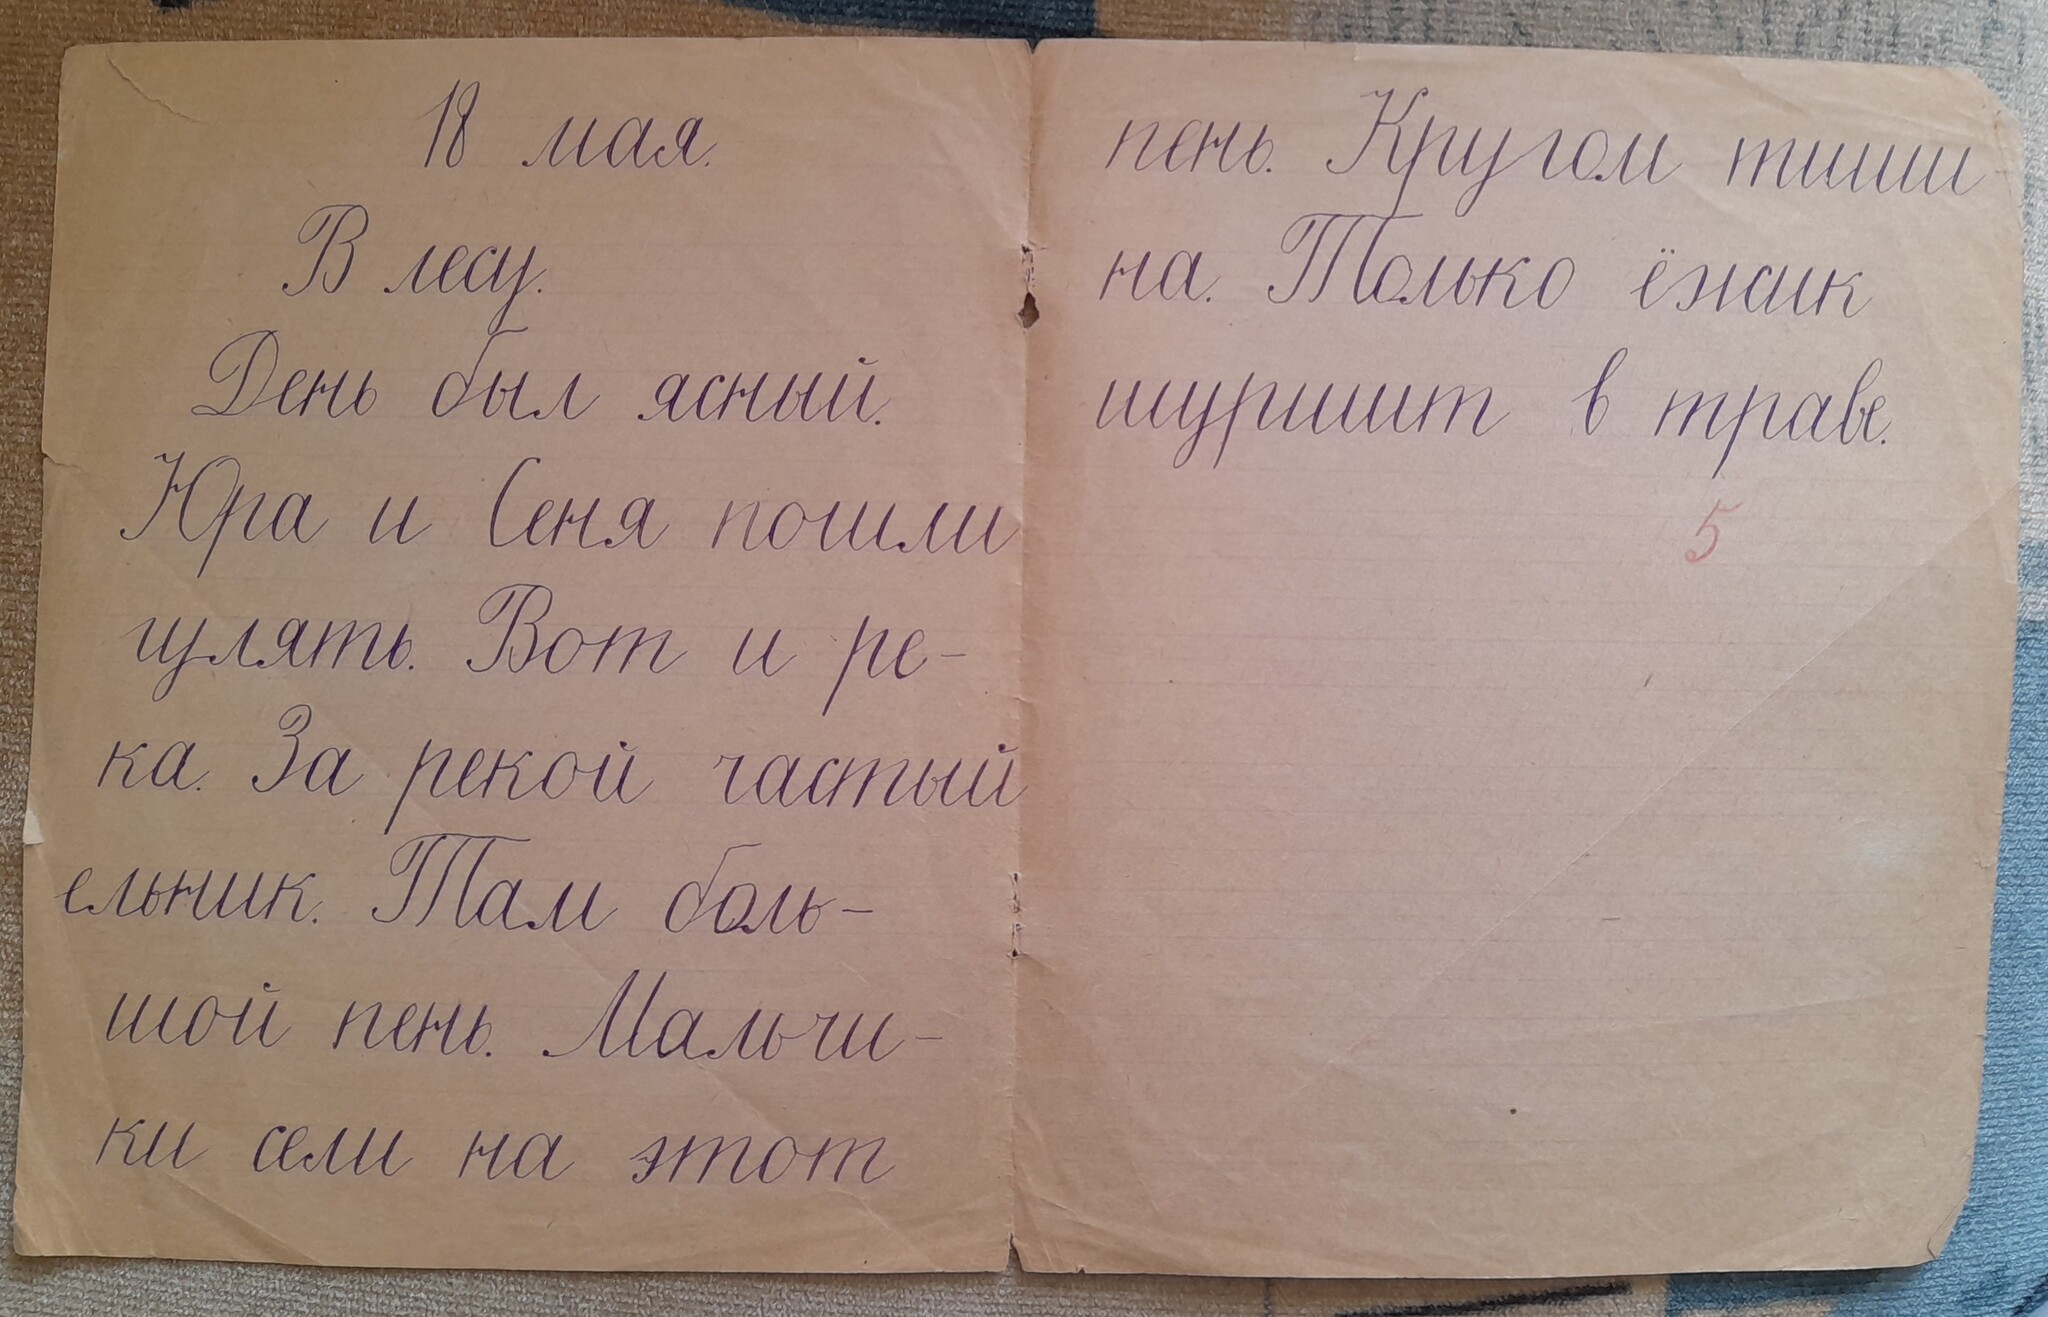 18 мая.
В лесу.
День был ясный.
Юра и Сеня пошли
гулять. Вот и ре-
ка. За рекой частый
ельник. Там боль-
шой пень. Мальчи-
ки сели на этот
пень. Кругом тиши
на. Только ёжик
шуршит в траве.
5